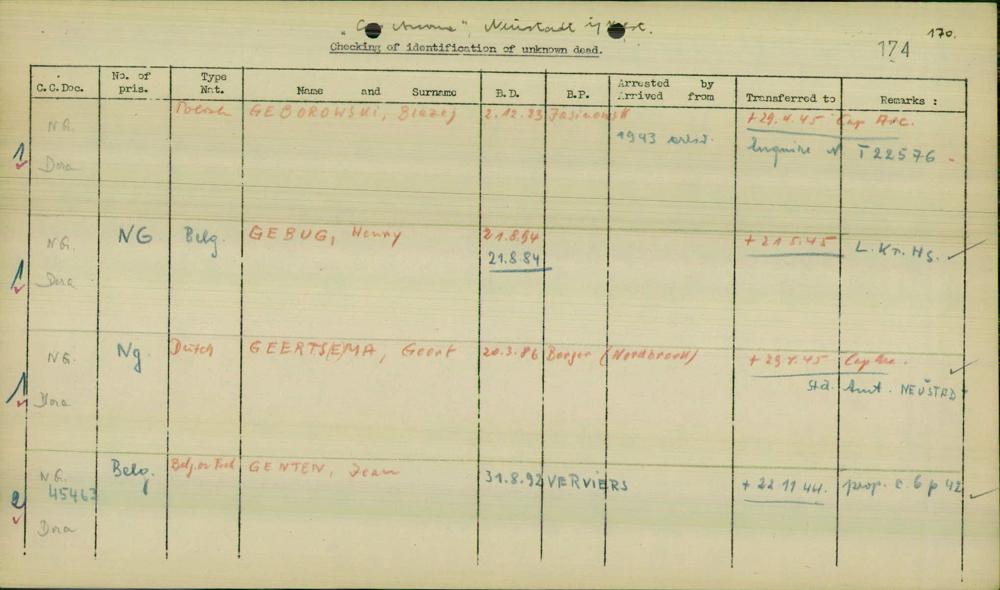 "Cap Arcona", Neustadt i/Holst.
170.
174
Checking of identification of unknown dead.
C.C.Doc. No. of pris. Type Nat. Name and Surname B.D. B.P. Arrested by Arrived from Transferred to Remarks :
NG. Polish GEBOROWSKI, Blazej 2.12.83 Jasinowsk +29.4.45 Cap Arc.
1943 arrest. Enquire N T 22576
1 Dora
NG. NG Belg. GEBUG, Henry 21.8.94 +21.5.45 L.Kr.Hs.
21.8.84
1 Dora
NG. Ng. Dutch GEERTSEMA, Geert 20.3.86 Borger (Nordbroek) +29.4.45 Cap Arc.
Std. Amt. NEUSTADT
1 Dora
NG. Belg. Belg. or GENTEN, Jean 31.8.92 VERVIERS +22 11 44. prop. c. 6 p 42
45463
2 Dora